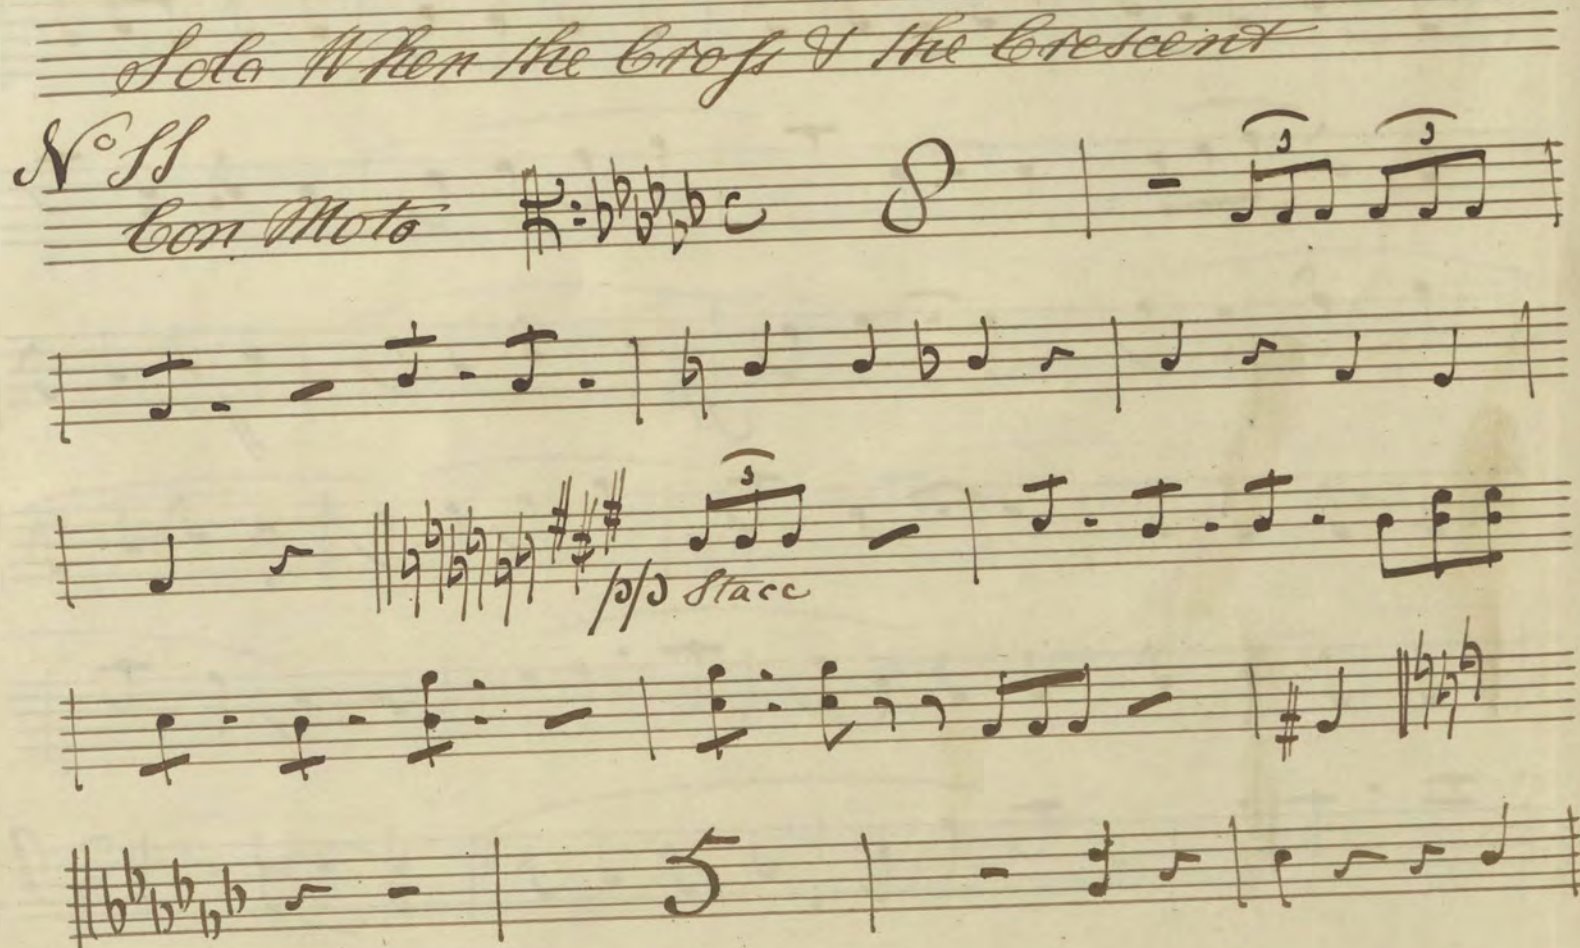 Solo When the Croſs & the Crescent
No 11
Con Moto
8
3 3
3
pp Stacc
5